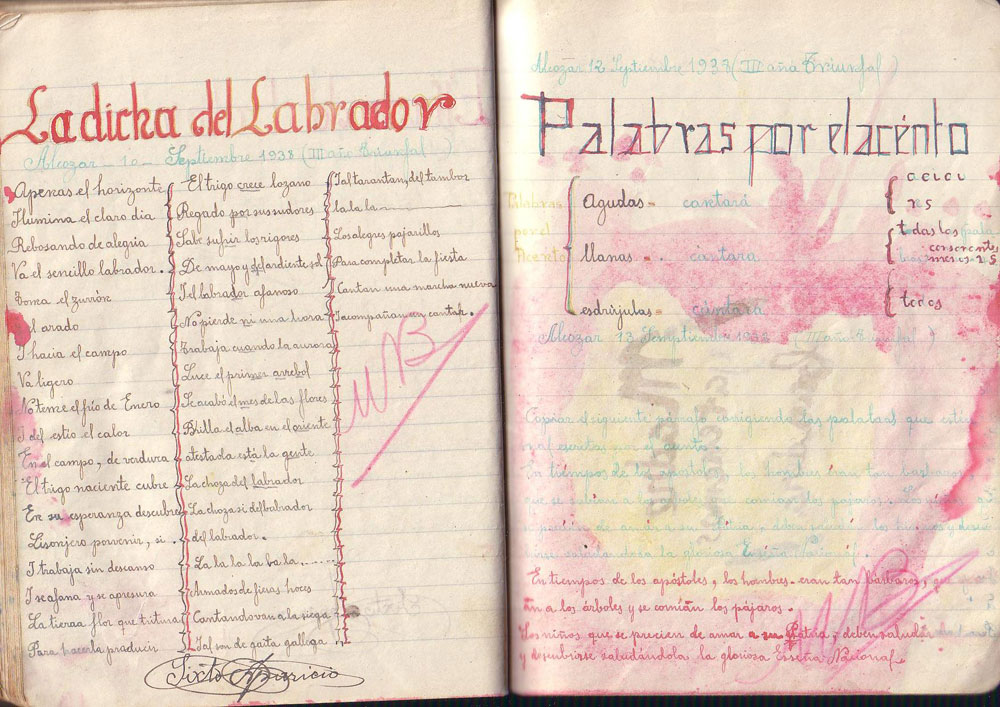 La dicha del Labrador
Alcozar - 10 - Septiembre 1938 (III año Triunfal)
Apenas el horizonte
Ilumina el claro dia
Rebosando de alegria
Va el sencillo labrador.
Toma el zurrón
el arado
I hacia el campo
Va ligero
No teme el frío de Enero
I del estio el calor
En el campo, de verdura
El trigo naciente cubre
En su esperanza descubre
Lisonjero porvenir, si.
I trabaja sin descanso
I se afana y se apresura
La tierra flor que tritura
Para hacerla producir
El trigo crece lozano
Regado por sus sudores
Sabe sufrir los rigores
De mayo y del ardiente sol
I el labrador afanoso
No pierde ni una hora
Trabaja cuando la aurora
Luce el primer arrebol
Se acabó el mes de las flores
Blilla el alba en el oriente
atestada está la gente
La choza del labrador
La choza si del babrador
del labrador.
La la la la la la
Armados de fieras hoces
Cantando van a la siega
I al son de gaita gallega
I al tarantan, del tambor
la la la
Los alegres pajarillos
Para completar la fiesta
Cantan una marcha nueva
I acompañan un cantar.
MB
Sixto Aparicio
Alcozar 12 Septiembre 1938 (III año Triunfal)
Palabras por el acénto
Palabras por el Acento
agudas - cantará
a e i o u
n s
llanas - cantara
todas las
consonentes
menos - n s
esdrújulas - cántara
todos
Alcozar 13 Septiembre 1938 (III año Triunfal)
Copiar el siguiente párrafo corrigiendo las palabras que estén
mal escritas
En tiempos de los apóstoles los hombres eran tan barbaros
que se subían a los arboles y se comían los pájaros. Los niños
la gloriosa Enseña Nacional.
En tiempos de los apóstoles, los hombres eran tan bárbaros, que
an a los árboles y se comían los pájaros.
Los niños que se precien de amar a su Patria, deben saludar
y descubrirse saludándola la gloriosa Enseña Nacional
MB